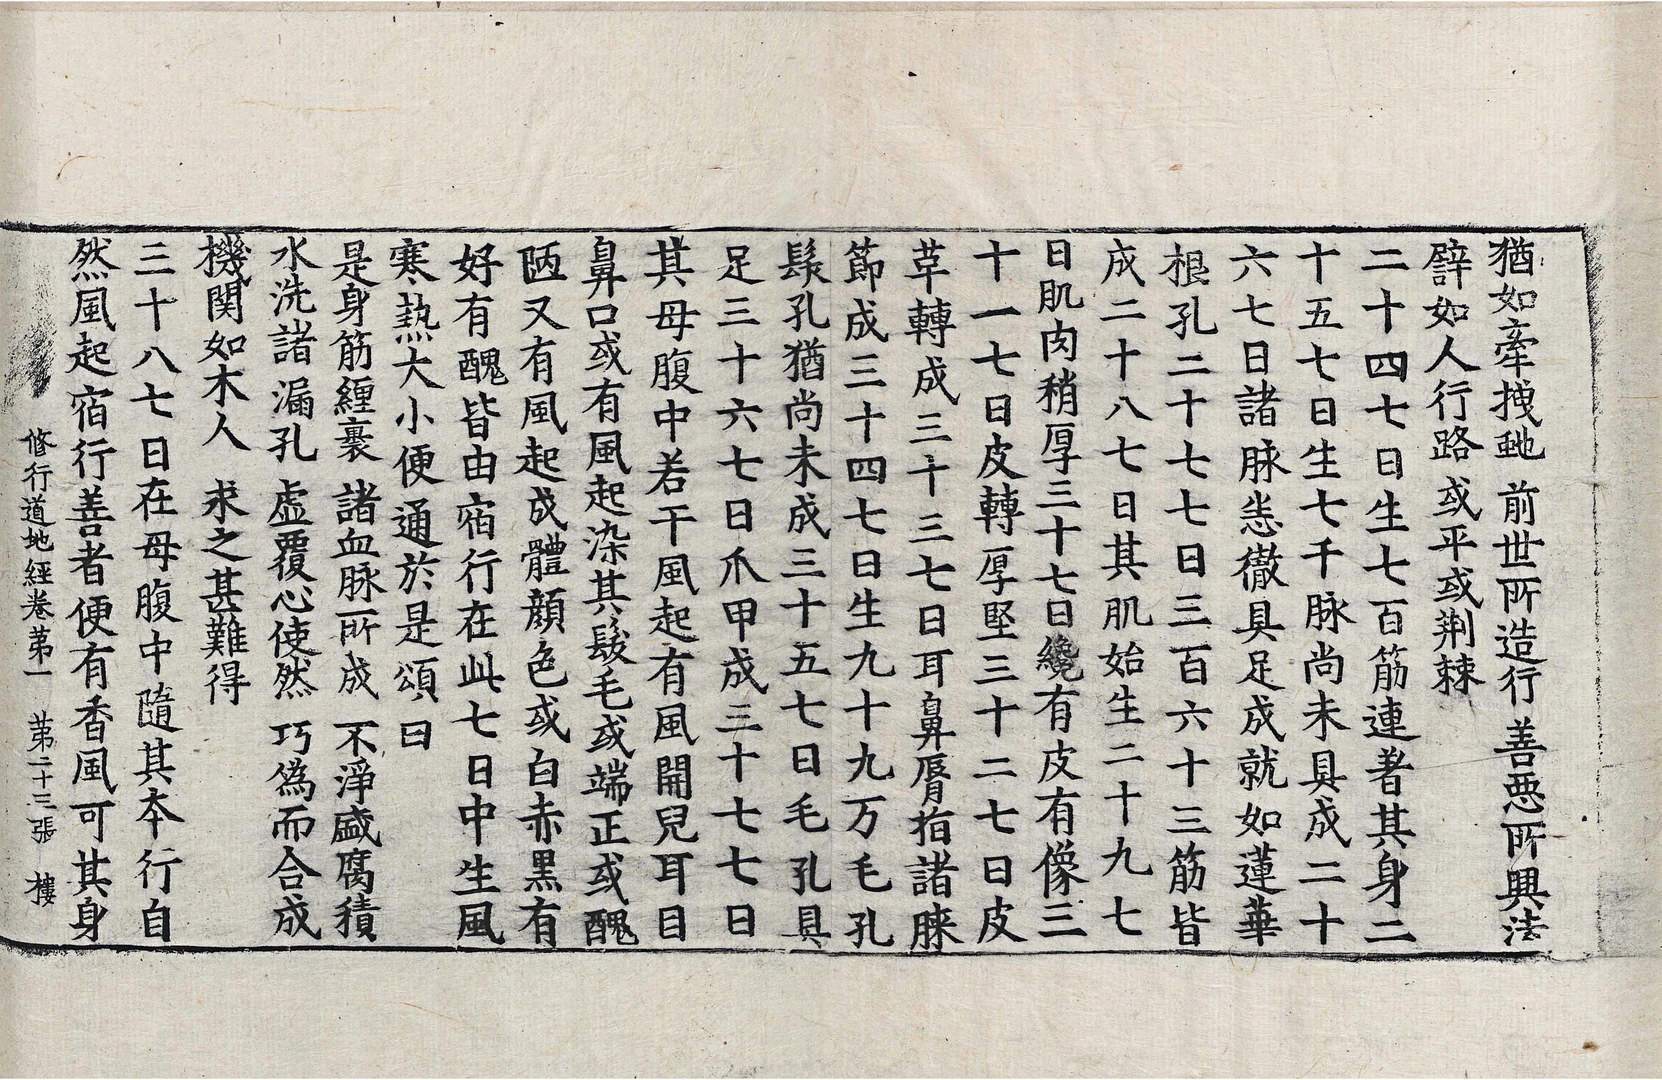 猶如牽拽虵　前世所造行　善惡所興法
譬如人行路　或平或荆棘
二十四七日生七百筋連著其身二
十五七日生七千脉尚未具成二十
六七日諸脉悉徹具足成就如蓮華
根孔二十七七日三百六十三筋皆
成二十八七日其肌始生二十九七
日肌肉稍厚三十七日纔有皮有像三
十一七日皮轉厚堅三十二七日皮
草轉成三十三七日耳鼻脣指諸膝
節成三十四七日生九十九万毛孔
髮孔猶尚未成三十五七日毛孔具
足三十六七日爪甲成三十七七日
其母腹中若干風起有風開兒耳目
鼻口或有風起染其髮毛或端正或醜
陋又有風起成體顔色或白赤黑有
好有醜皆由宿行在此七日中生風
寒熱大小便通於是頌曰
是身筋纏裹　諸血脉所成　不淨盛腐積
水洗諸漏孔　虛覆心使然　巧偽而合成
機関如木人　求之甚難得
三十八七日在母腹中隨其本行自
然風起宿行善者便有香風可其身
修行道地經卷第一　第二十三張　樓